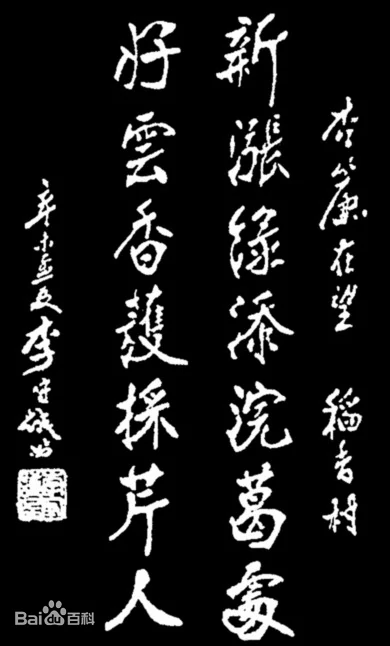 杏簾在望 稻香村
新漲綠添浣葛處
好雲香護採芹人
辛未孟夏李守
Bai du 百科